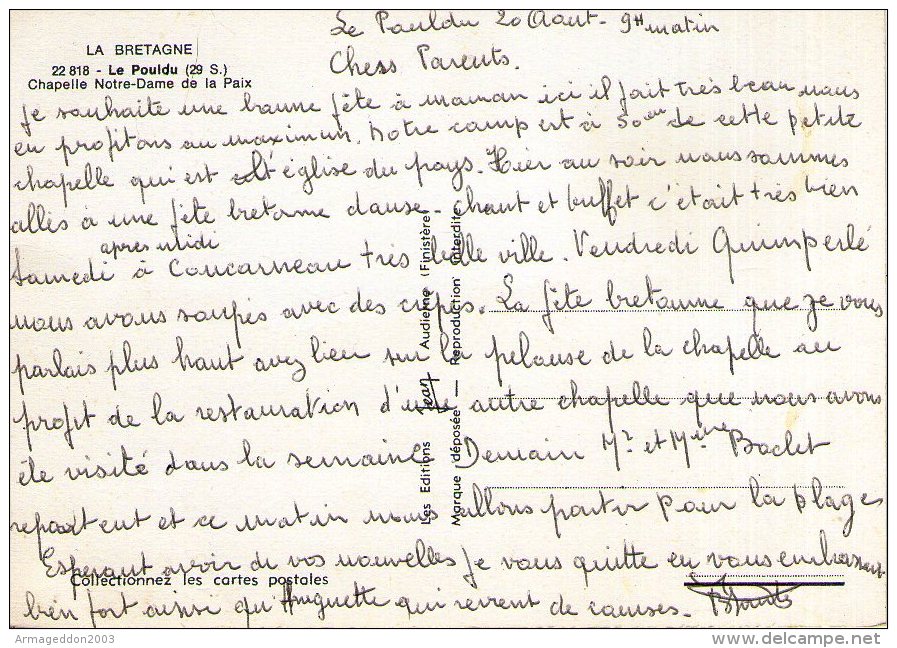 LA BRETAGNE
22 818 - Le Pouldu (29 S.)
Chapelle Notre-Dame de la Paix
Le Pouldu 20 Aout - 9H matin
Chess Parents.
Je souhaite une bonne fête à maman ici il fait très beau nous
en profitons au maximum. Notre camp est à 50m de cette petite
chapelle qui est l'église du pays. Hier au soir nous sommes
allés à une fête bretonne danse - chant et buffet c'était très bien
après midi
Samedi à Concarneau très belle ville. Vendredi Quimperlé
nous avons soupés avec des crêpes. La fête bretonne que je vous
parlais plus haut avez lieu sur la pelouse de la chapelle au
profit de la restauration d'une autre chapelle que nous avons
été visité dans la semaine. Demain Mr et Mme Baclet
repartent et ce matin nous allons partir pour la plage
Esperant avoir de vos nouvelles je vous quitte en vous embrassant
bien fort ainsi qu'Huguette qui revient de causes.
Les Editions Jean Audierne (Finistère)
Marque déposée — Reproduction interdite
Collectionnez les cartes postales
Armageddon2003
delcampe.net